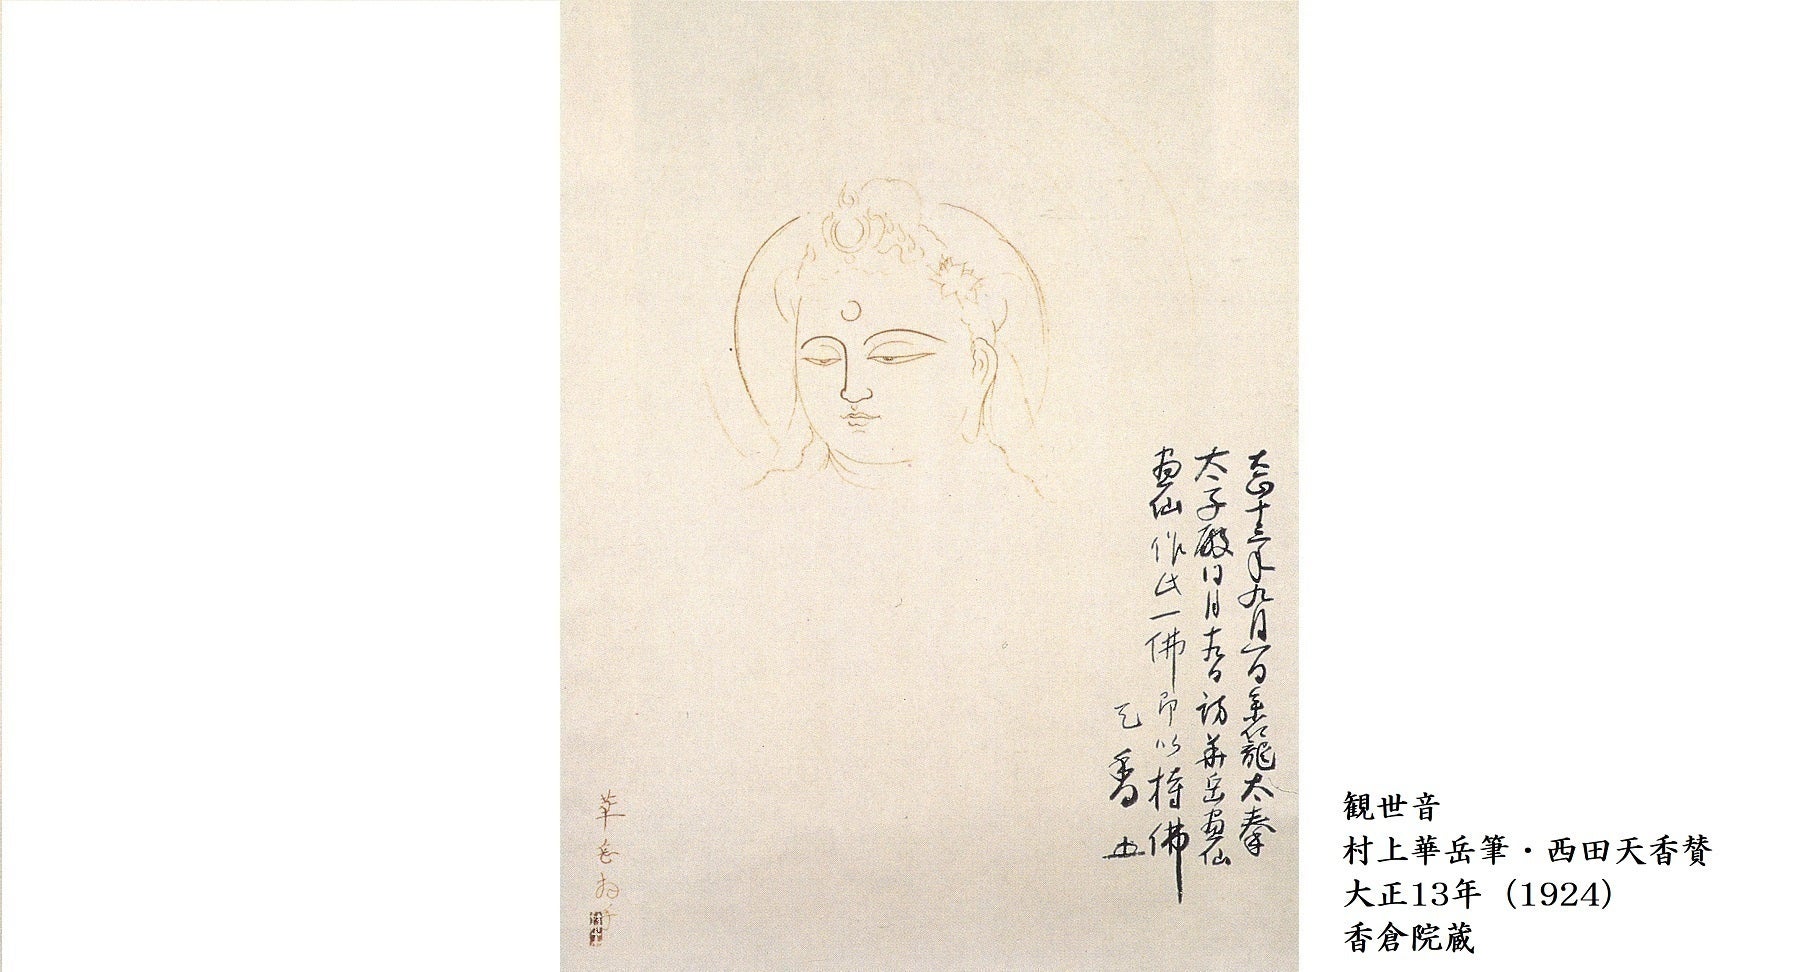 大正十三年九月一日参籠太秦
太子殿同月十九日訪華岳画仙
画仙作此一佛即以持佛
天香
華岳拝
観世音
村上華岳筆・西田天香賛
大正13年（1924）
香倉院蔵